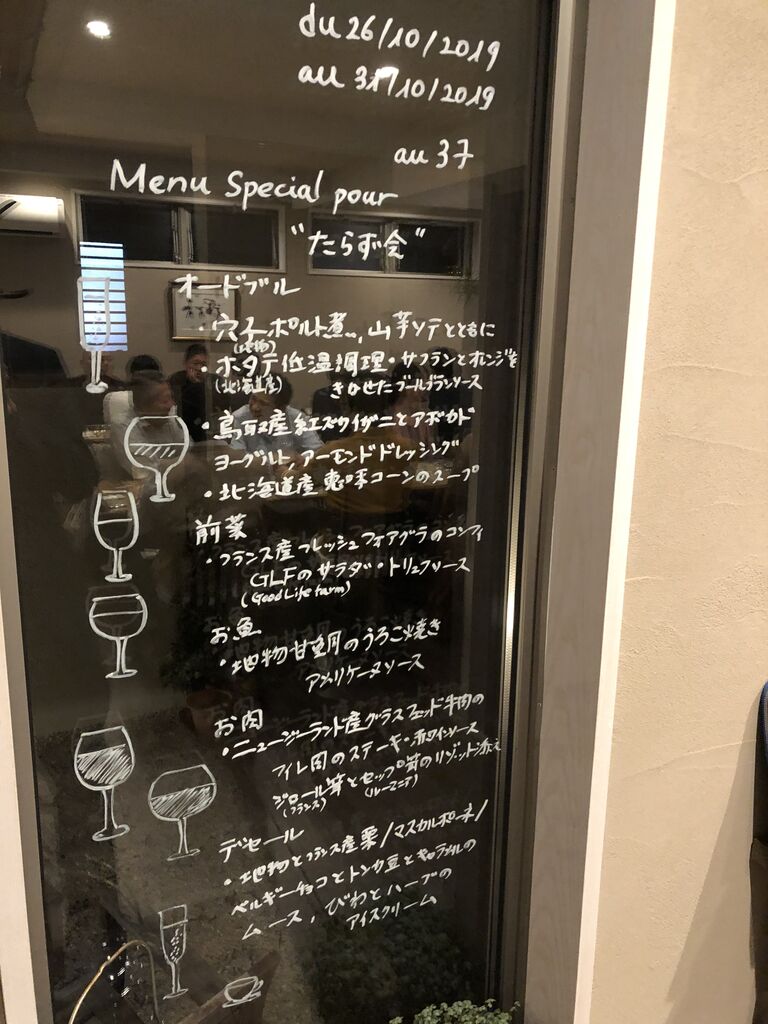 du 26/10/2019
au 31/10/2019
au 37
Menu Special pour
"たらず会"
オードブル
・穴子ポルト煮、山芋ソテとともに
(地物)
・ホタテ低温調理・サフランとオレンジを
(北海道産) きかせたブールブランソース
・鳥取産紅ズワイガニとアボカド
ヨーグルト、アーモンドドレッシング
・北海道産恵味コーンのスープ
前菜
・フランス産フレッシュフォアグラのコンフィ
GLFのサラダ・トリュフソース
(Good Life farm)
お魚
・地物甘鯛のうろこ焼き
アメリケーヌソース
お肉
・ニュージーランド産グラスフェッド牛肉の
フィレ肉のステーキ・赤ワインソース
ジロール茸とセップ茸のリゾット添え
(フランス) (ルーマニア)
デセール
・地物とフランス産栗/マスカルポーネ/
ベルギーチョコとトンカ豆とキャラメルの
ムース、びわとハーブの
アイスクリーム